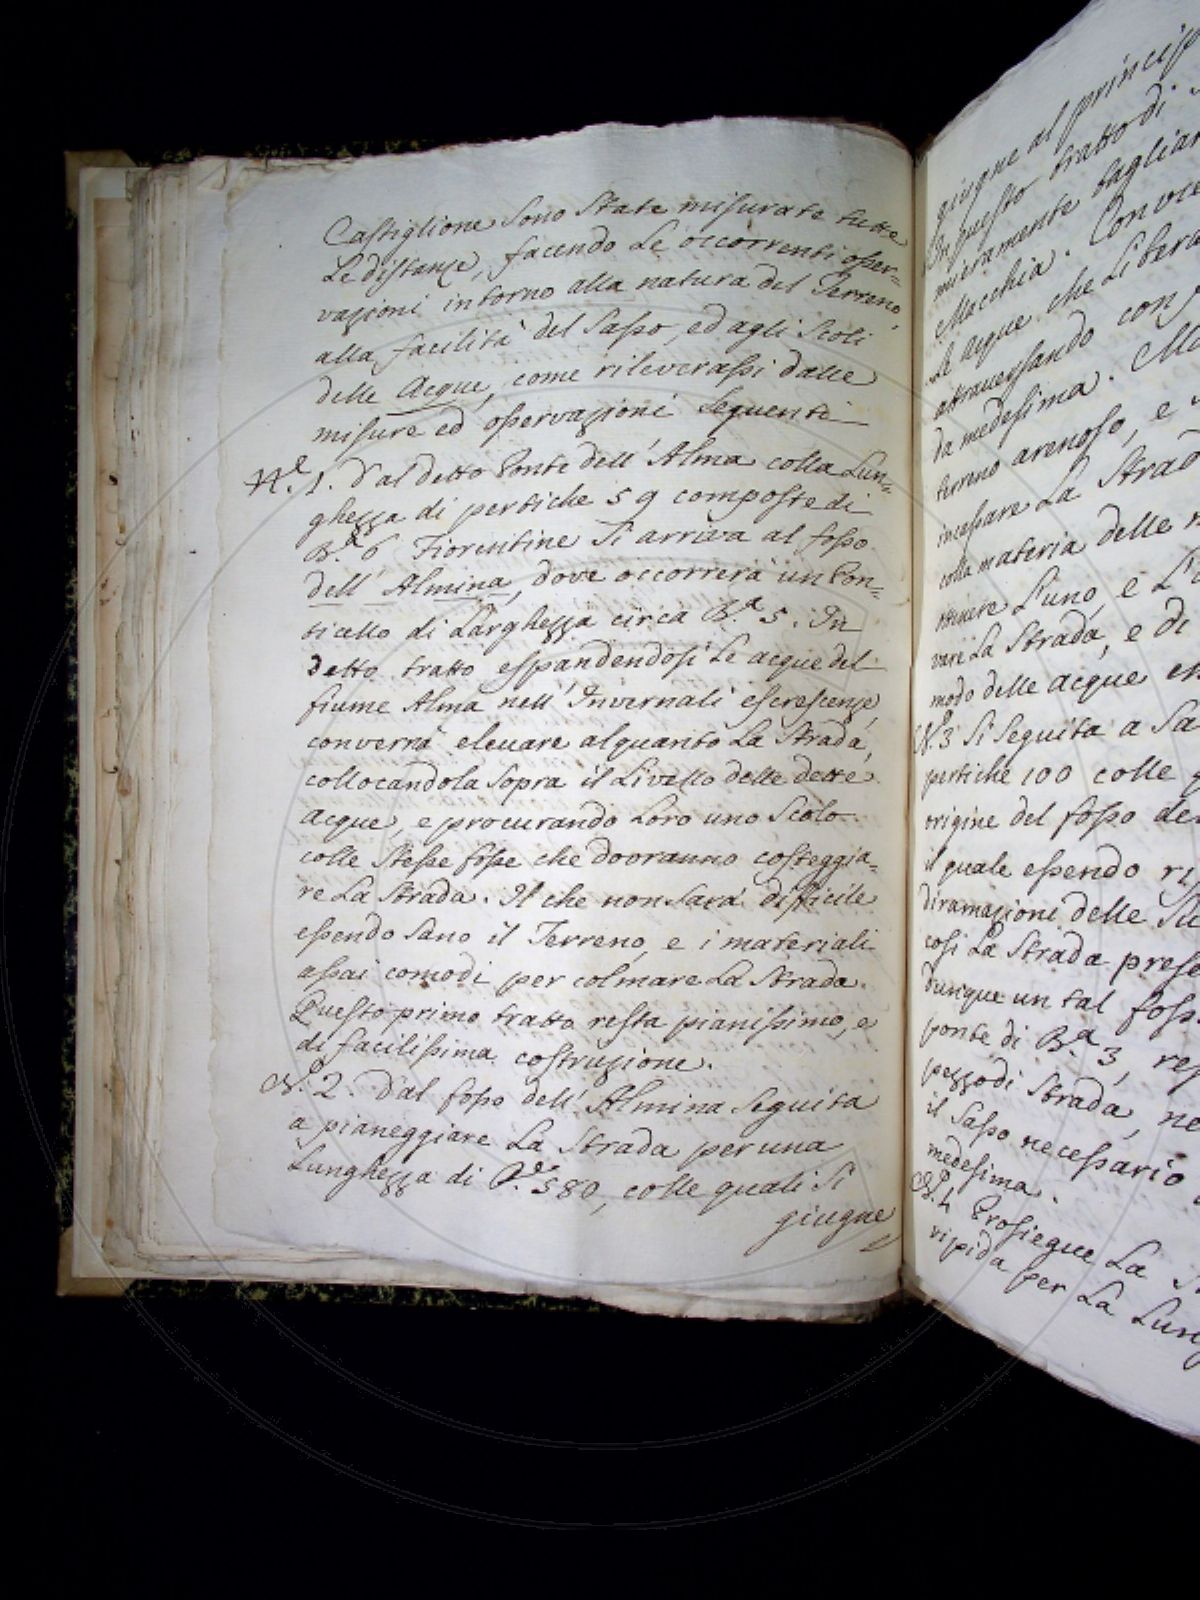 Castiglione sono State misurate tutte
Le distanze, facendo Le occorrenti osser=
vazioni intorno alla natura del Terreno,
alla facilità del Sasso, ed agli Scoli
delle Acque, come rileverassi dalle
misure ed osservazioni Sequenti
N.º 1. Dal detto Ponte dell'Alma colla Lun=
ghezza di pertiche 59 composte di
B.ª 6 Fiorentine Si arriva al fosso
dell'Almina, dove occorrerà un Pon=
ticello di Larghezza circa B.ª 5. In
Detto tratto espandendosi Le acque del
fiume Alma nell'Invernali escrescenze
converrà elevare alquanto La Strada,
collocandola Sopra il Livello delle dette
acque, e procurando Loro uno Scolo
colle Stesse fosse che dovranno costeggia=
re La Strada. Il che non Sarà difficile
essendo Sano il Terreno, e i materiali
assai comodi per colmare La Strada.
Questo primo tratto resta pianissimo, e
di facilissima costruzione.
N. 2. Dal fosso dell'Almina Seguita
a pianeggiare La Strada per una
Lunghezza di P.e 580, colle quali Si
giugne
giugne al
In questo tratto di
meramente tagliar
Macchia.
Le acque che Libera
attraversando con
da medesima.
terreno arenoso, e
La Strad
colla materia delle
L'uno, e L'
vare La Strada, e di
modo delle acque
N.º 3 Si Seguita a Sa
pertiche 100 colle
origine del fosso de
il quale essendo
diramazioni delle
così La Strada prese
dunque un tal foss
ponte di B.ª 3,
pezzo di Strada, ne
il Sasso necessario
medesima.
N.º 4 Prosiegue La
ripida per La Lung